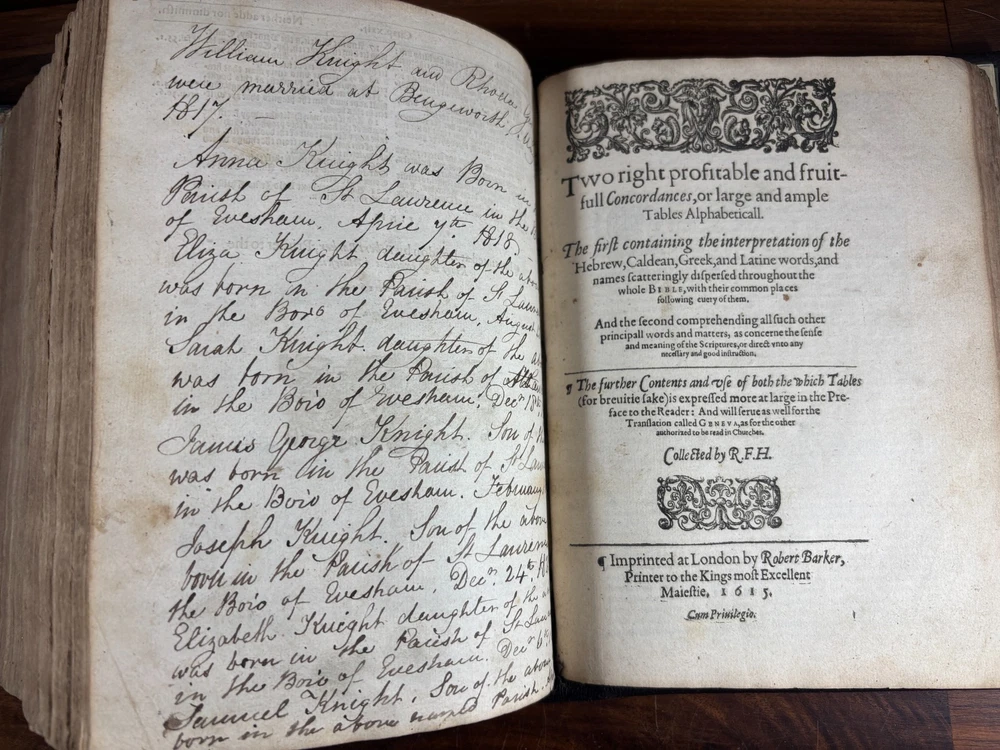 William Knight and Rhoda
were married at Bengeworth
1817.
Anna Knight was Born in
Parish of St Lawrence in the
of Evesham, April 7th 1818
Eliza Knight daughter of the above
was born in the Parish of St Lawre
in the Boro of Evesham, August
Sarah Knight. daughter of the a
was born in the Parish of
in the Boro of Evesham, Decr 18
James George Knight. Son of
was born in the Parish of St Law
in the Boro of Evesham. February
Joseph Knight. Son of the above
born in the Parish of St Lawren
the Boro of Evesham, Decr. 24th
Elizabeth Knight daughter of the
was born in the Parish of St Law
in the Boro of Evesham. Decr 6th
Samuel Knight, Son of the above
born in the above named Parish.
Two right profitable and fruit-
full Concordances, or large and ample
Tables Alphabeticall.
The first containing the interpretation of the
Hebrew, Caldean, Greek, and Latine words, and
names scatteringly dispersed throughout the
whole BIBLE, with their common places
following euery of them.
And the second comprehending all such other
principall words and matters, as concerne the sense
and meaning of the Scriptures, or direct vnto any
necessary and good instruction.
¶ The further Contents and vse of both the which Tables
(for breuitie sake) is expressed more at large in the Pre-
face to the Reader: And will serue as well for the
Translation called GENEVA, as for the other
authorized to be read in Churches.
Collected by R.F.H.
¶ Imprinted at London by Robert Barker,
Printer to the Kings most Excellent
Maiestie, 1615.
Cum Priuilegio.